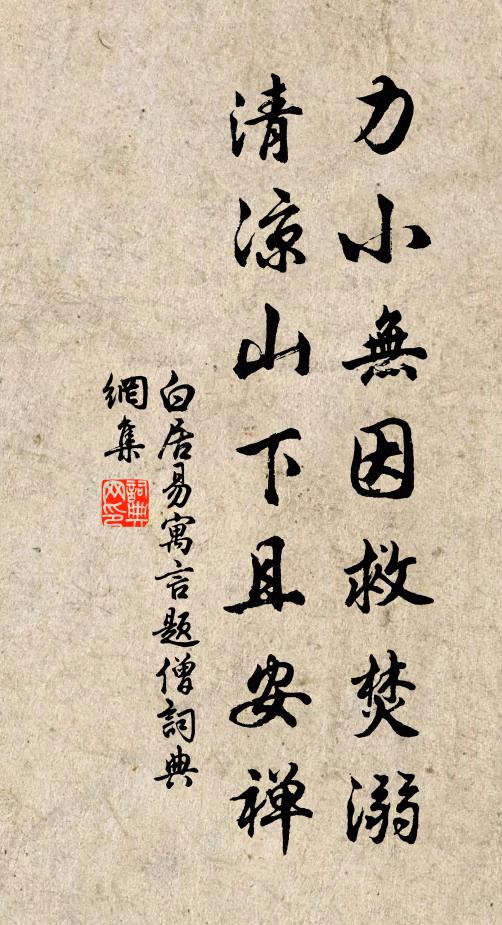 力小無因救焚溺
清涼山下且安禅
白居易寓言題僧詞典
網集
詞典
网印